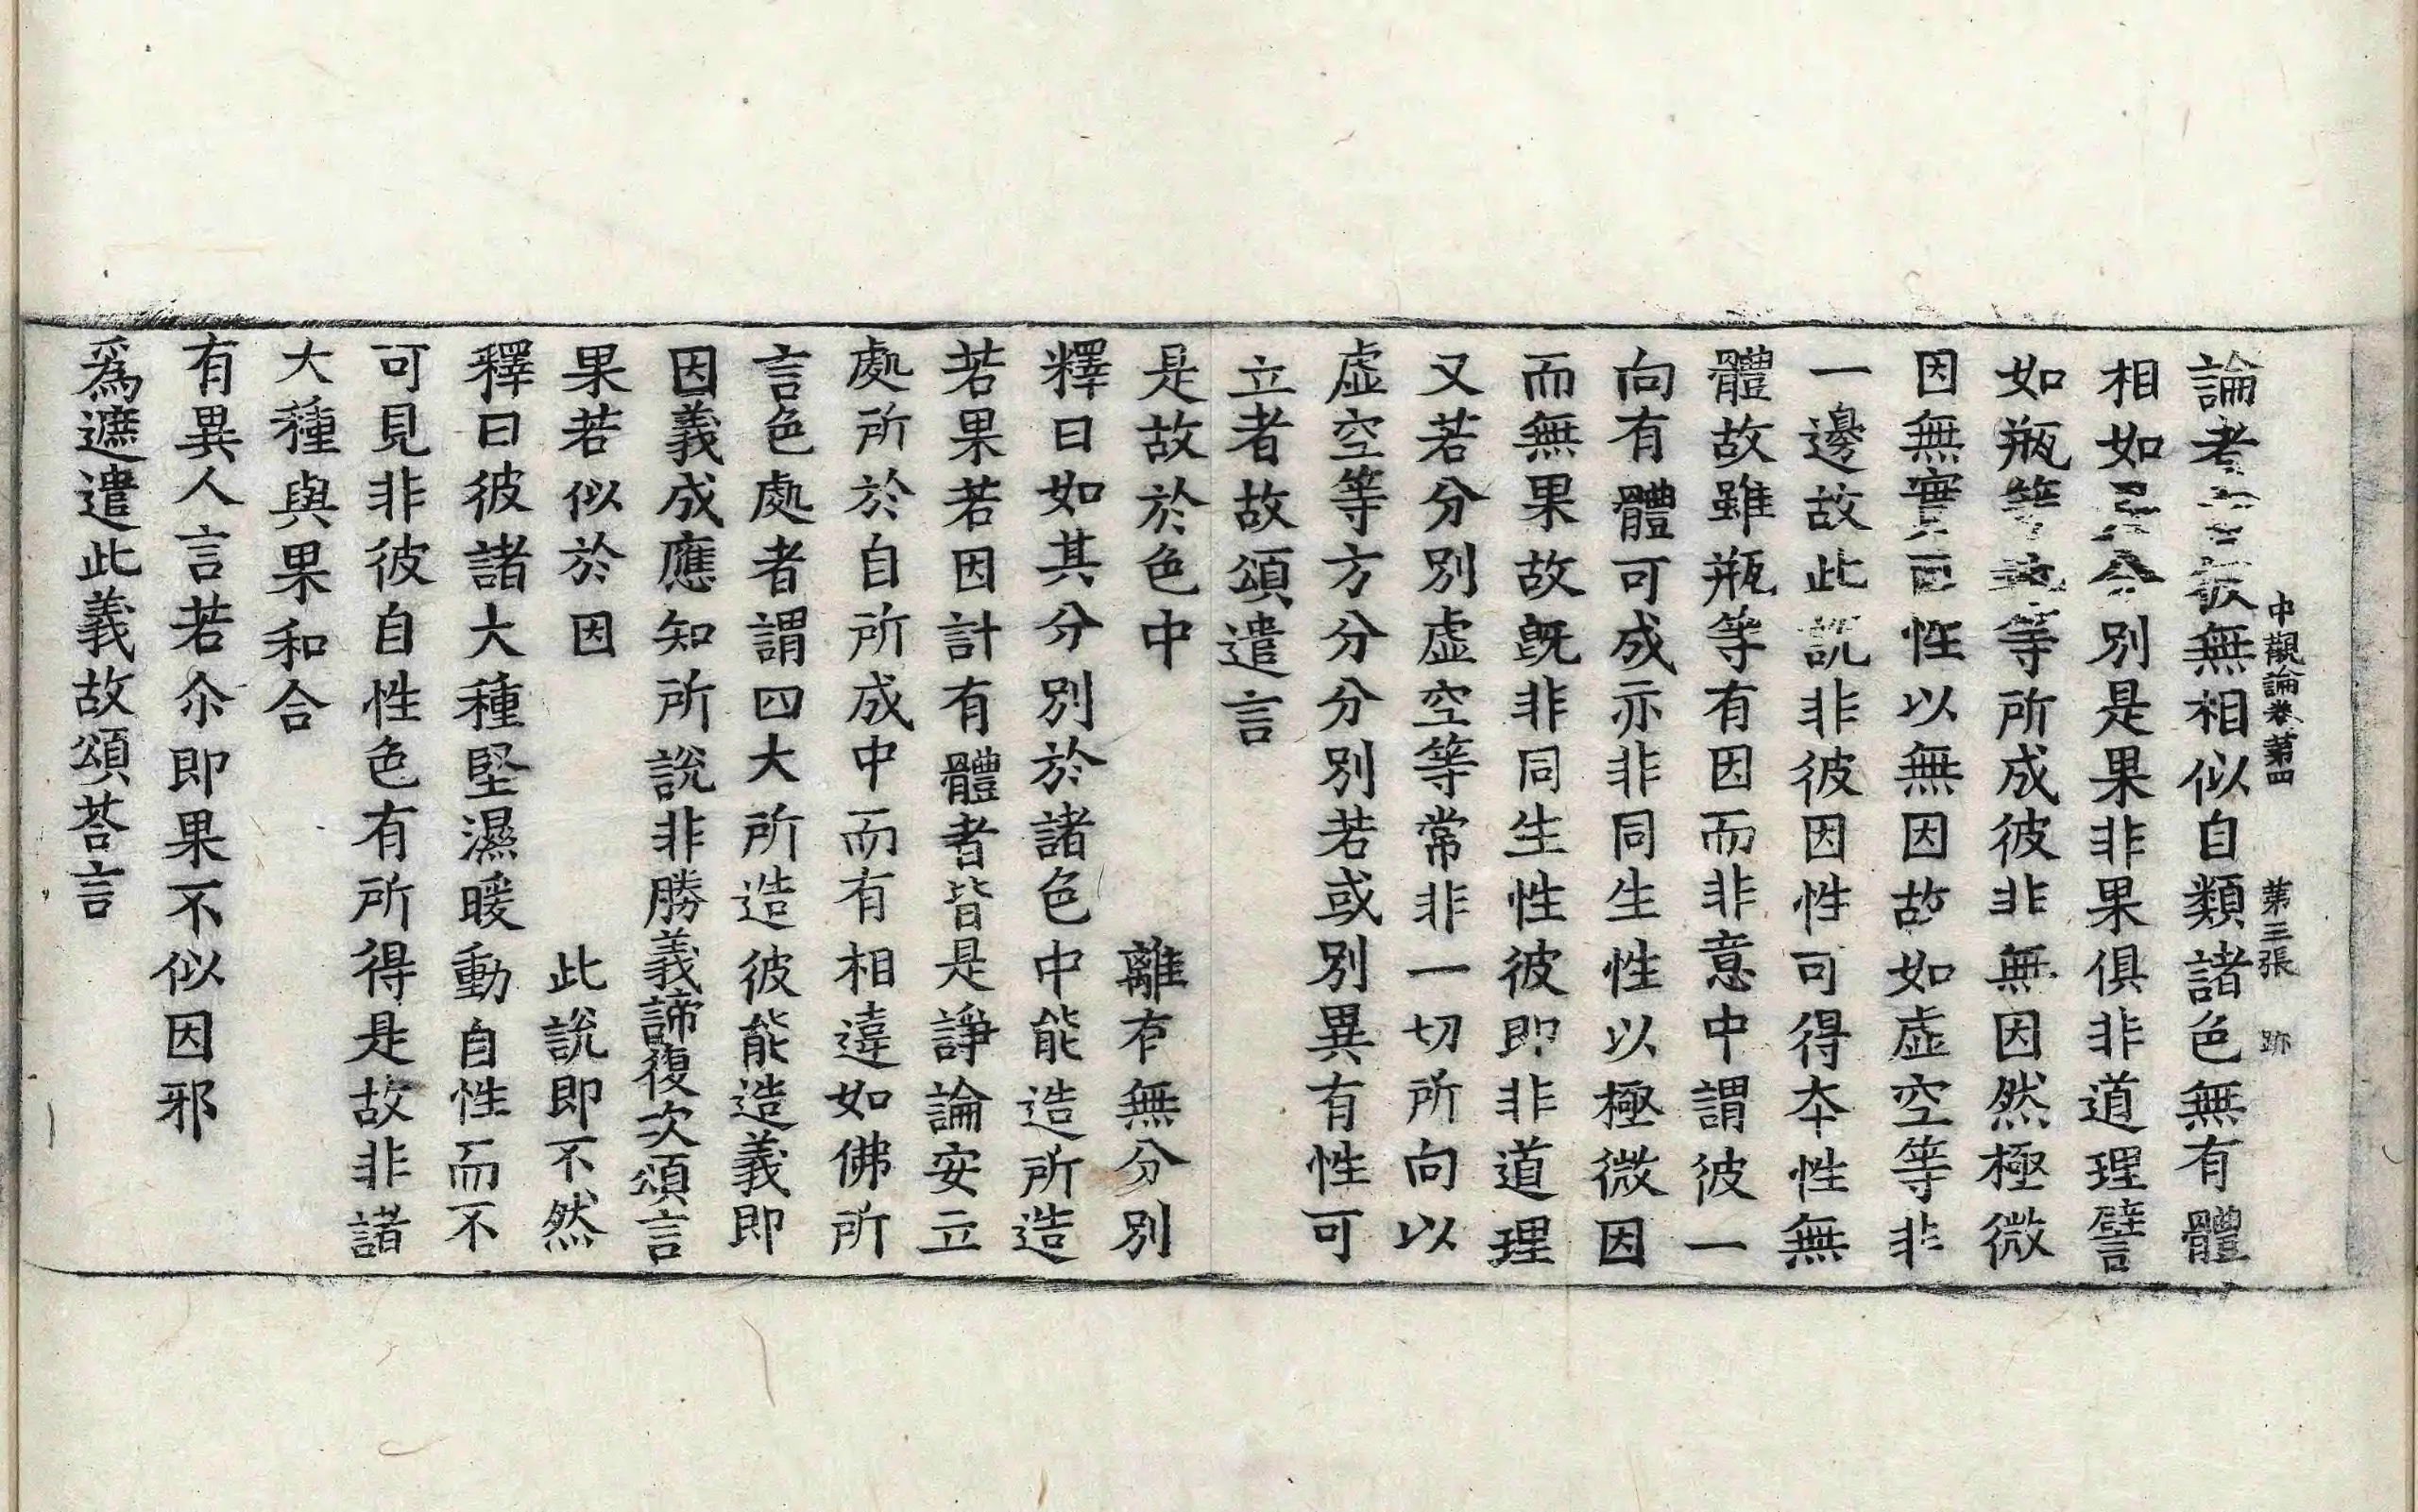 中觀論卷第四 第三張 跡
論者言彼無相似自類諸色無有體
相如是分別是果非果俱非道理譬
如瓶等泥等所成彼非無因然極微
因無實自性以無因故如虛空等非
一邊故此說非彼因性可得夲性無
體故雖瓶等有因而非意中謂彼一
向有體可成亦非同生性以極微因
而無果故旣非同生性彼即非道理
又若分別虛空等常非一切所向以
虛空等方分分別若或別異有性可
立者故頌遣言
是故於色中 離冇無分別
釋曰如其分別於諸色中能造所造
若果若因計有體者皆是諍論安立
處所於自所成中而有相違如佛所
言色處者謂四大所造彼能造義即
因義成應知所說非勝義諦復次頌言
果若似於因 此說即不然
釋曰彼諸大種堅濕暖動自性而不
可見非彼自性色有所得是故非諸
大種與果和合
有異人言若尒即果不似因邪
爲遮遣此義故頌荅言